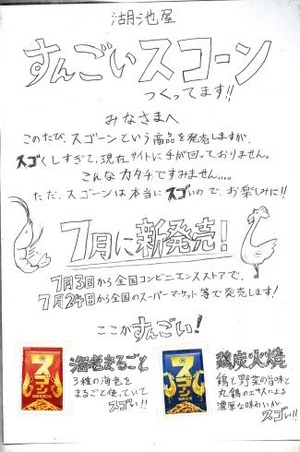 湖池屋
すんごいスゴーン
つくってます!!
みなさまへ
このたび、スゴーンという商品を発売しますが、
スゴくしすぎて、現在サイトに手が回っておりません。
こんなカタチですみません…。
ただ、スゴーンは本当にスゴいので、お楽しみに!!
7月に新発売!
7月3日から全国コンビニエンスストアで、
7月24日から全国のスーパーマーケット等で発売します!
ここがすんごい!
海老まるごと
3種の海老を
まるごと使っていて
スゴい!!
鶏炭火焼
鶏と野菜の旨味と
丸鶏のエキスによる
濃厚な味わいが
スゴい!!
スゴーン
スゴーン